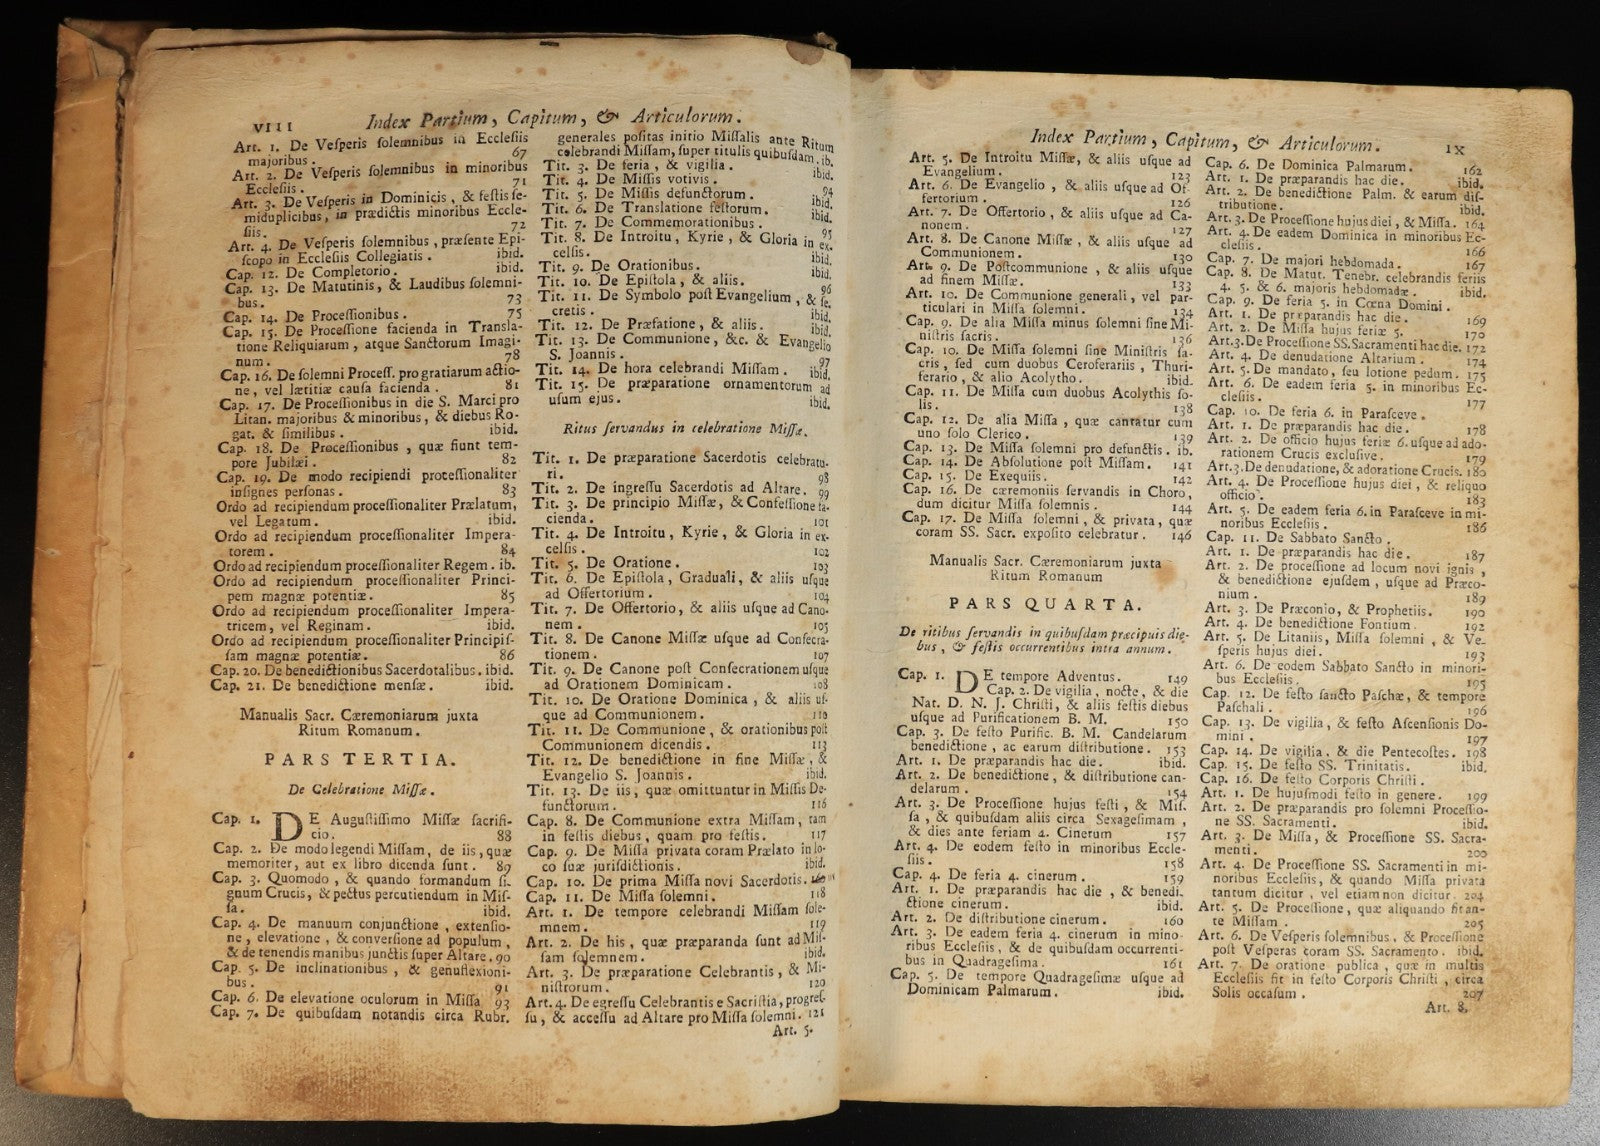 VIII Index Partium, Capitum, & Articulorum.
Art. 1. De Veſperis ſolemnibus in Eccleſiis
majoribus. 67
Art. 2. De Veſperis ſolemnibus in minoribus
Eccleſiis. 71
Art. 3. De Veſperis in Dominicis, & feſtis ſe-
miduplicibus, in prædictis minoribus Eccle-
ſiis. 72
Art. 4. De Veſperis ſolemnibus, præſente Epi-
ſcopo in Eccleſiis Collegiatis. ibid.
Cap. 12. De Completorio. ibid.
Cap. 13. De Matutinis, & Laudibus ſolemni-
bus. 73
Cap. 14. De Proceſſionibus. 75
Cap. 15. De Proceſſione facienda in Transla-
tione Reliquiarum, atque Sanctorum Imagi-
num. 78
Cap. 16. De ſolemni Proceſſ. pro gratiarum actio-
ne, vel lætitiæ cauſa facienda. 81
Cap. 17. De Proceſſionibus in die S. Marci pro
Litan. majoribus & minoribus, & diebus Ro-
gat. & ſimilibus. ibid.
Cap. 18. De Proceſſionibus, quæ fiunt tem-
pore Jubilæi. 82
Cap. 19. De modo recipiendi proceſſionaliter
inſignes perſonas. 83
Ordo ad recipiendum proceſſionaliter Prælatum,
vel Legatum. ibid.
Ordo ad recipiendum proceſſionaliter Impera-
torem. 84
Ordo ad recipiendum proceſſionaliter Regem. ib.
Ordo ad recipiendum proceſſionaliter Princi-
pem magnæ potentiæ. 85
Ordo ad recipiendum proceſſionaliter Impera-
tricem, vel Reginam. ibid.
Ordo ad recipiendum proceſſionaliter Principiſ-
ſam magnæ potentiæ. 86
Cap. 20. De benedictionibus Sacerdotalibus. ibid.
Cap. 21. De benedictione menſæ. ibid.
Manualis Sacr. Cæremoniarum juxta
Ritum Romanum.
PARS TERTIA.
De Celebratione Miſſæ.
Cap. 1. DE Auguſtiſſimo Miſſæ ſacrifi-
cio. 88
Cap. 2. De modo legendi Miſſam, de iis, quæ
memoriter, aut ex libro dicenda ſunt. 89
Cap. 3. Quomodo, & quando formandum ſi-
gnum Crucis, & pectus percutiendum in Miſ-
ſa. ibid.
Cap. 4. De manuum conjunctione, extenſio-
ne, elevatione, & converſione ad populum,
& de tenendis manibus junctis ſuper Altare. 90
Cap. 5. De inclinationibus, & genuflexioni-
bus. 91
Cap. 6. De elevatione oculorum in Miſſa 93
Cap. 7. De quibuſdam notandis circa Rubr.
generales poſitas initio Miſſalis ante Ritum
celebrandi Miſſam, ſuper titulis quibuſdam. ib.
Tit. 3. De feria, & vigilia. ibid.
Tit. 4. De Miſſis votivis.
Tit. 5. De Miſſis defunctorum. 94
Tit. 6. De Translatione feſtorum. ibid.
Tit. 7. De Commemorationibus. ibid.
Tit. 8. De Introitu, Kyrie, & Gloria in ex- 95
celſis. ibid.
Tit. 9. De Orationibus. ibid.
Tit. 10. De Epiſtola, & aliis. 96
Tit. 11. De Symbolo poſt Evangelium, & ſe-
cretis. ibid.
Tit. 12. De Præfatione, & aliis. ibid.
Tit. 13. De Communione, &c. & Evangelio
S. Joannis. 97
Tit. 14. De hora celebrandi Miſſam. ibid.
Tit. 15. De præparatione ornamentorum ad
uſum ejus. ibid.
Ritus ſervandus in celebratione Miſſæ.
Tit. 1. De præparatione Sacerdotis celebratu-
ri. 98
Tit. 2. De ingreſſu Sacerdotis ad Altare. 99
Tit. 3. De principio Miſſæ, & Confeſſione fa-
cienda. 101
Tit. 4. De Introitu, Kyrie, & Gloria in ex-
celſis. 102
Tit. 5. De Oratione. 103
Tit. 6. De Epiſtola, Graduali, & aliis uſque
ad Offertorium. 104
Tit. 7. De Offertorio, & aliis uſque ad Cano-
nem. 105
Tit. 8. De Canone Miſſæ uſque ad Conſecra-
tionem. 107
Tit. 9. De Canone poſt Conſecrationem uſque
ad Orationem Dominicam. 108
Tit. 10. De Oratione Dominica, & aliis uſ-
que ad Communionem. 110
Tit. 11. De Communione, & orationibus poſt
Communionem dicendis. 113
Tit. 12. De benedictione in fine Miſſæ, &
Evangelio S. Joannis. ibid.
Tit. 13. De iis, quæ omittuntur in Miſſis De-
functorum. 116
Cap. 8. De Communione extra Miſſam, tam
in feſtis diebus, quam pro feſtis. 117
Cap. 9. De Miſſa privata coram Prælato in lo-
co ſuæ jurisdictionis. ibid.
Cap. 10. De prima Miſſa novi Sacerdotis.
Cap. 11. De Miſſa ſolemni. 118
Art. 1. De tempore celebrandi Miſſam ſole-
mnem. 119
Art. 2. De his, quæ præparanda ſunt ad Miſ-
ſam ſolemnem. ibid.
Art. 3. De præparatione Celebrantis, & Mi-
niſtrorum. 120
Art. 4. De egreſſu Celebrantis e Sacriſtia, progreſ-
ſu, & acceſſu ad Altare pro Miſſa ſolemni. 121
Art. 5.
Index Partium, Capitum, & Articulorum. IX
Art. 5. De Introitu Miſſæ, & aliis uſque ad
Evangelium. 123
Art. 6. De Evangelio, & aliis uſque ad Of-
fertorium. 126
Art. 7. De Offertorio, & aliis uſque ad Ca-
nonem. 127
Art. 8. De Canone Miſſæ, & aliis uſque ad
Communionem. 130
Art. 9. De Poſtcommunione, & aliis uſque
ad finem Miſſæ. 133
Art. 10. De Communione generali, vel par-
ticulari in Miſſa ſolemni. 134
Cap. 9. De alia Miſſa minus ſolemni ſine Mi-
niſtris ſacris. 136
Cap. 10. De Miſſa ſolemni ſine Miniſtris ſa-
cris, ſed cum duobus Ceroferariis, Thuri-
ferario, & alio Acolytho. ibid.
Cap. 11. De Miſſa cum duobus Acolythis ſo-
lis. 138
Cap. 12. De alia Miſſa, quæ cantatur cum
uno ſolo Clerico. 139
Cap. 13. De Miſſa ſolemni pro defunctis. ib.
Cap. 14. De Abſolutione poſt Miſſam. 141
Cap. 15. De Exequiis. 142
Cap. 16. De cæremoniis ſervandis in Choro,
dum dicitur Miſſa ſolemnis. 144
Cap. 17. De Miſſa ſolemni, & privata, quæ
coram SS. Sacr. expoſito celebratur. 146
Manualis Sacr. Cæremoniarum juxta
Ritum Romanum
PARS QUARTA.
De ritibus ſervandis in quibuſdam præcipuis die-
bus, & feſtis occurrentibus intra annum.
Cap. 1. DE tempore Adventus. 149
Cap. 2. De vigilia, nocte, & die
Nat. D. N. J. Chriſti, & aliis feſtis diebus
uſque ad Purificationem B. M. 150
Cap. 3. De feſto Purific. B. M. Candelarum
benedictione, ac earum diſtributione. 153
Art. 1. De præparandis hac die. ibid.
Art. 2. De benedictione, & diſtributione can-
delarum. 154
Art. 3. De Proceſſione hujus feſti, & Miſ-
ſa, & quibuſdam aliis circa Sexageſimam,
& dies ante feriam 4. Cinerum 157
Art. 4. De eodem feſto in minoribus Eccle-
ſiis. 158
Cap. 4. De feria 4. cinerum. 159
Art. 1. De præparandis hac die, & benedi-
ctione cinerum. ibid.
Art. 2. De diſtributione cinerum. 160
Art. 3. De eadem feria 4. cinerum in mino-
ribus Eccleſiis, & de quibuſdam occurrenti-
bus in Quadrageſima. 161
Cap. 5. De tempore Quadrageſimæ uſque ad
Dominicam Palmarum. ibid.
Cap. 6. De Dominica Palmarum. 162
Art. 1. De præparandis hac die. ibid.
Art. 2. De benedictione Palm. & earum diſ-
tributione. ibid.
Art. 3. De Proceſſione hujus diei, & Miſſa. 164
Art. 4. De eadem Dominica in minoribus Ec-
cleſiis. 166
Cap. 7. De majori hebdomada. 167
Cap. 8. De Matut. Tenebr. celebrandis feriis
4. 5. & 6. majoris hebdomadæ. ibid.
Cap. 9. De feria 5. in Cœna Domini.
Art. 1. De præparandis hac die. 169
Art. 2. De Miſſa hujus feriæ 5. 170
Art. 3. De Proceſſione SS. Sacramenti hac die. 172
Art. 4. De denudatione Altarium. 174
Art. 5. De mandato, ſeu lotione pedum. 175
Art. 6. De eadem feria 5. in minoribus Ec-
cleſiis. 177
Cap. 10. De feria 6. in Paraſceve.
Art. 1. De præparandis hac die. 178
Art. 2. De officio hujus feriæ 6. uſque ad ado-
rationem Crucis excluſive. 179
Art. 3. De denudatione, & adoratione Crucis. 180
Art. 4. De Proceſſione hujus diei, & reliquo
officio. 183
Art. 5. De eadem feria 6. in Paraſceve in mi-
noribus Eccleſiis. 186
Cap. 11. De Sabbato Sancto.
Art. 1. De præparandis hac die. 187
Art. 2. De proceſſione ad locum novi ignis,
& benedictione ejuſdem, uſque ad Præco-
nium. 189
Art. 3. De Præconio, & Prophetiis. 190
Art. 4. De benedictione Fontium. 192
Art. 5. De Litaniis, Miſſa ſolemni, & Ve-
ſperis hujus diei. 193
Art. 6. De eodem Sabbato Sancto in minori-
bus Eccleſiis. 195
Cap. 12. De feſto ſancto Paſchæ, & tempore
Paſchali. 196
Cap. 13. De vigilia, & feſto Aſcenſionis Do-
mini. 197
Cap. 14. De vigilia, & die Pentecoſtes. 198
Cap. 15. De feſto SS. Trinitatis. ibid.
Cap. 16. De feſto Corporis Chriſti.
Art. 1. De hujuſmodi feſto in genere. 199
Art. 2. De præparandis pro ſolemni Proceſſio-
ne SS. Sacramenti. ibid.
Art. 3. De Miſſa, & Proceſſione SS. Sacra-
menti. 200
Art. 4. De Proceſſione SS. Sacramenti in mi-
noribus Eccleſiis, & quando Miſſa privata
tantum dicitur, vel etiam non dicitur. 204
Art. 5. De Proceſſione, quæ aliquando fit an-
te Miſſam. 205
Art. 6. De Veſperis ſolemnibus, & Proceſſione
poſt Veſperas coram SS. Sacramento. ibid.
Art. 7. De oratione publica, quæ in multis
Eccleſiis fit in feſto Corporis Chriſti, circa
Solis occaſum. 207
Art. 8.